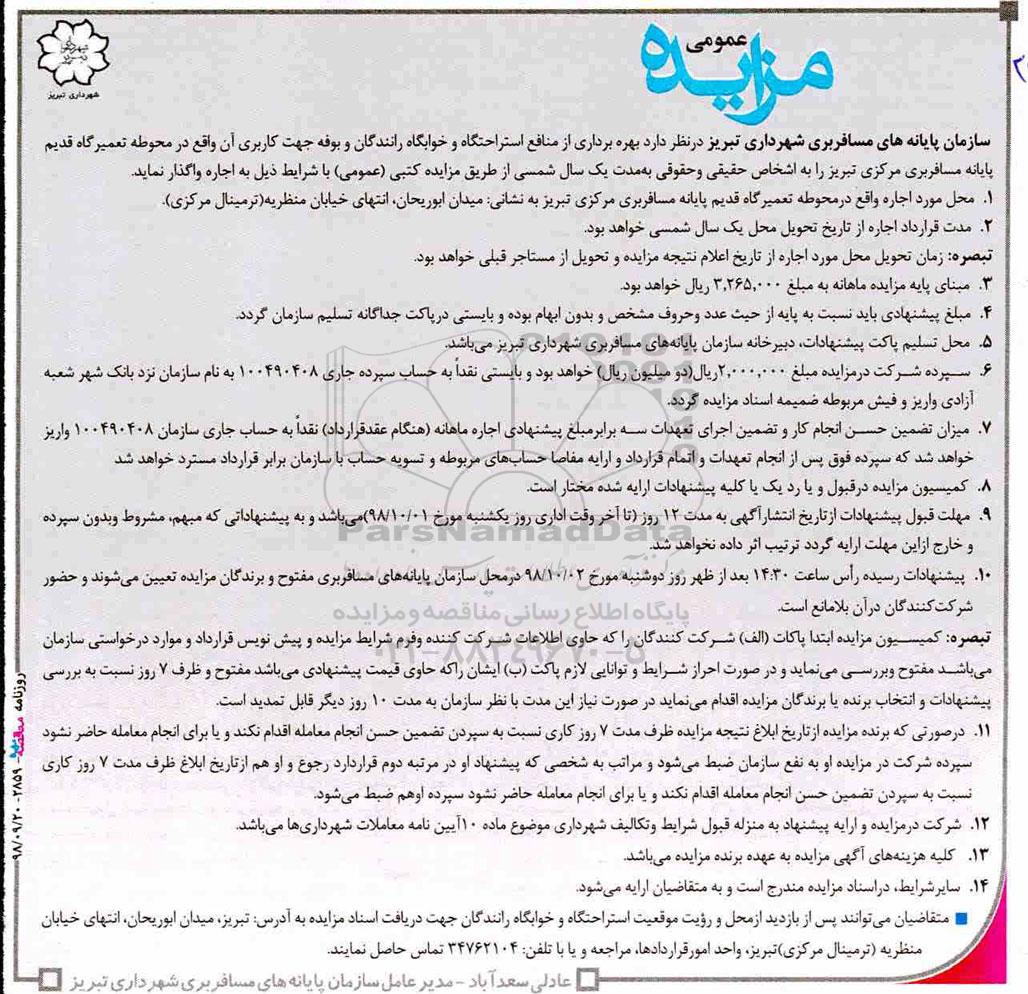 مزایده عمومی
شهرداری تبریز
سازمان پایانه های مسافربری شهرداری تبریز درنظر دارد بهره برداری از منافع استراحتگاه و خوابگاه رانندگان و بوفه جهت کاربری آن واقع در محوطه تعمیرگاه قدیم
پایانه مسافربری مرکزی تبریز را به اشخاص حقیقی وحقوقی به‌مدت یک سال شمسی از طریق مزایده کتبی (عمومی) با شرایط ذیل به اجاره واگذار نماید.
۱. محل مورد اجاره واقع درمحوطه تعمیرگاه قدیم پایانه مسافربری مرکزی تبریز به نشانی: میدان ابوریحان، انتهای خیابان منظریه(ترمینال مرکزی).
۲. مدت قرارداد اجاره از تاریخ تحویل محل یک سال شمسی خواهد بود.
تبصره: زمان تحویل محل مورد اجاره از تاریخ اعلام نتیجه مزایده و تحویل از مستاجر قبلی خواهد بود.
۳. مبنای پایه مزایده ماهانه به مبلغ ۳,۲۶۵,۰۰۰ ریال خواهد بود.
۴. مبلغ پیشنهادی باید نسبت به پایه از حیث عدد وحروف مشخص و بدون ابهام بوده و بایستی درپاکت جداگانه تسلیم سازمان گردد.
۵. محل تسلیم پاکت پیشنهادات، دبیرخانه سازمان پایانه‌های مسافربری شهرداری تبریز می‌باشد.
۶. سپرده شرکت درمزایده مبلغ ۲,۰۰۰,۰۰۰ریال(دو میلیون ریال) خواهد بود و بایستی نقداً به حساب سپرده جاری ۱۰۰۴۹۰۴۰۸ به نام سازمان نزد بانک شهر شعبه
آزادی واریز و فیش مربوطه ضمیمه اسناد مزایده گردد.
۷. میزان تضمین حسن انجام کار و تضمین اجرای تعهدات سه برابرمبلغ پیشنهادی اجاره ماهانه (هنگام عقدقرارداد) نقداً به حساب جاری سازمان ۱۰۰۴۹۰۴۰۸ واریز
خواهد شد که سپرده فوق پس از انجام تعهدات و اتمام قرارداد و ارایه مفاصا حساب‌های مربوطه و تسویه حساب با سازمان برابر قرارداد مسترد خواهد شد
۸. کمیسیون مزایده درقبول و یا رد یک یا کلیه پیشنهادات ارایه شده مختار است.
۹. مهلت قبول پیشنهادات ازتاریخ انتشارآگهی به مدت ۱۲ روز (تا آخر وقت اداری روز یکشنبه مورخ ۹۸/۱۰/۰۱)می‌باشد و به پیشنهاداتی که مبهم، مشروط وبدون سپرده
و خارج ازاین مهلت ارایه گردد ترتیب اثر داده نخواهد شد.
۱۰. پیشنهادات رسیده رأس ساعت ۱۴:۳۰ بعد از ظهر روز دوشنبه مورخ ۹۸/۱۰/۰۲ درمحل سازمان پایانه‌های مسافربری مفتوح و برندگان مزایده تعیین می‌شوند و حضور
شرکت‌کنندگان درآن بلامانع است.
تبصره: کمیسیون مزایده ابتدا پاکات (الف) شرکت کنندگان را که حاوی اطلاعات شرکت کننده وفرم شرایط مزایده و پیش نویس قرارداد و موارد درخواستی سازمان
می‌باشد مفتوح وبررسی می‌نماید و در صورت احراز شرایط و توانایی لازم پاکت (ب) ایشان راکه حاوی قیمت پیشنهادی می‌باشد مفتوح و ظرف ۷ روز نسبت به بررسی
پیشنهادات و انتخاب برنده یا برندگان مزایده اقدام می‌نماید در صورت نیاز این مدت با نظر سازمان به مدت ۱۰ روز دیگر قابل تمدید است.
۱۱. درصورتی که برنده مزایده ازتاریخ ابلاغ نتیجه مزایده ظرف مدت ۷ روز کاری نسبت به سپردن تضمین حسن انجام معامله اقدام نکند و یا برای انجام معامله حاضر نشود
سپرده شرکت در مزایده او به نفع سازمان ضبط می‌شود و مراتب به شخصی که پیشنهاد او در مرتبه دوم قراردارد رجوع و او هم ازتاریخ ابلاغ ظرف مدت ۷ روز کاری
نسبت به سپردن تضمین حسن انجام معامله اقدام نکند و یا برای انجام معامله حاضر نشود سپرده اوهم ضبط می‌شود.
۱۲. شرکت درمزایده و ارایه پیشنهاد به منزله قبول شرایط وتکالیف شهرداری موضوع ماده ۱۰آیین نامه معاملات شهرداری‌ها می‌باشد.
۱۳. کلیه هزینه‌های آگهی مزایده به عهده برنده مزایده می‌باشد.
۱۴. سایرشرایط، دراسناد مزایده مندرج است و به متقاضیان ارایه می‌شود.
متقاضیان می‌توانند پس از بازدید ازمحل و رؤیت موقعیت استراحتگاه و خوابگاه رانندگان جهت دریافت اسناد مزایده به آدرس: تبریز، میدان ابوریحان، انتهای خیابان
منظریه (ترمینال مرکزی)تبریز، واحد امورقراردادها، مراجعه و یا با تلفن: ۳۴۷۶۲۱۰۴ تماس حاصل نمایند.
عادلی سعدآباد - مدیر عامل سازمان پایانه های مسافربری شهرداری تبریز
روزنامه مناقصه مزایده - ۲۸۵۹ - ۹۸/۰۹/۲۰
ParsNamadData
پایگاه اطلاع رسانی مناقصه و مزایده
۰۲۱-۸۸۳۴۹۶۷۰-۵